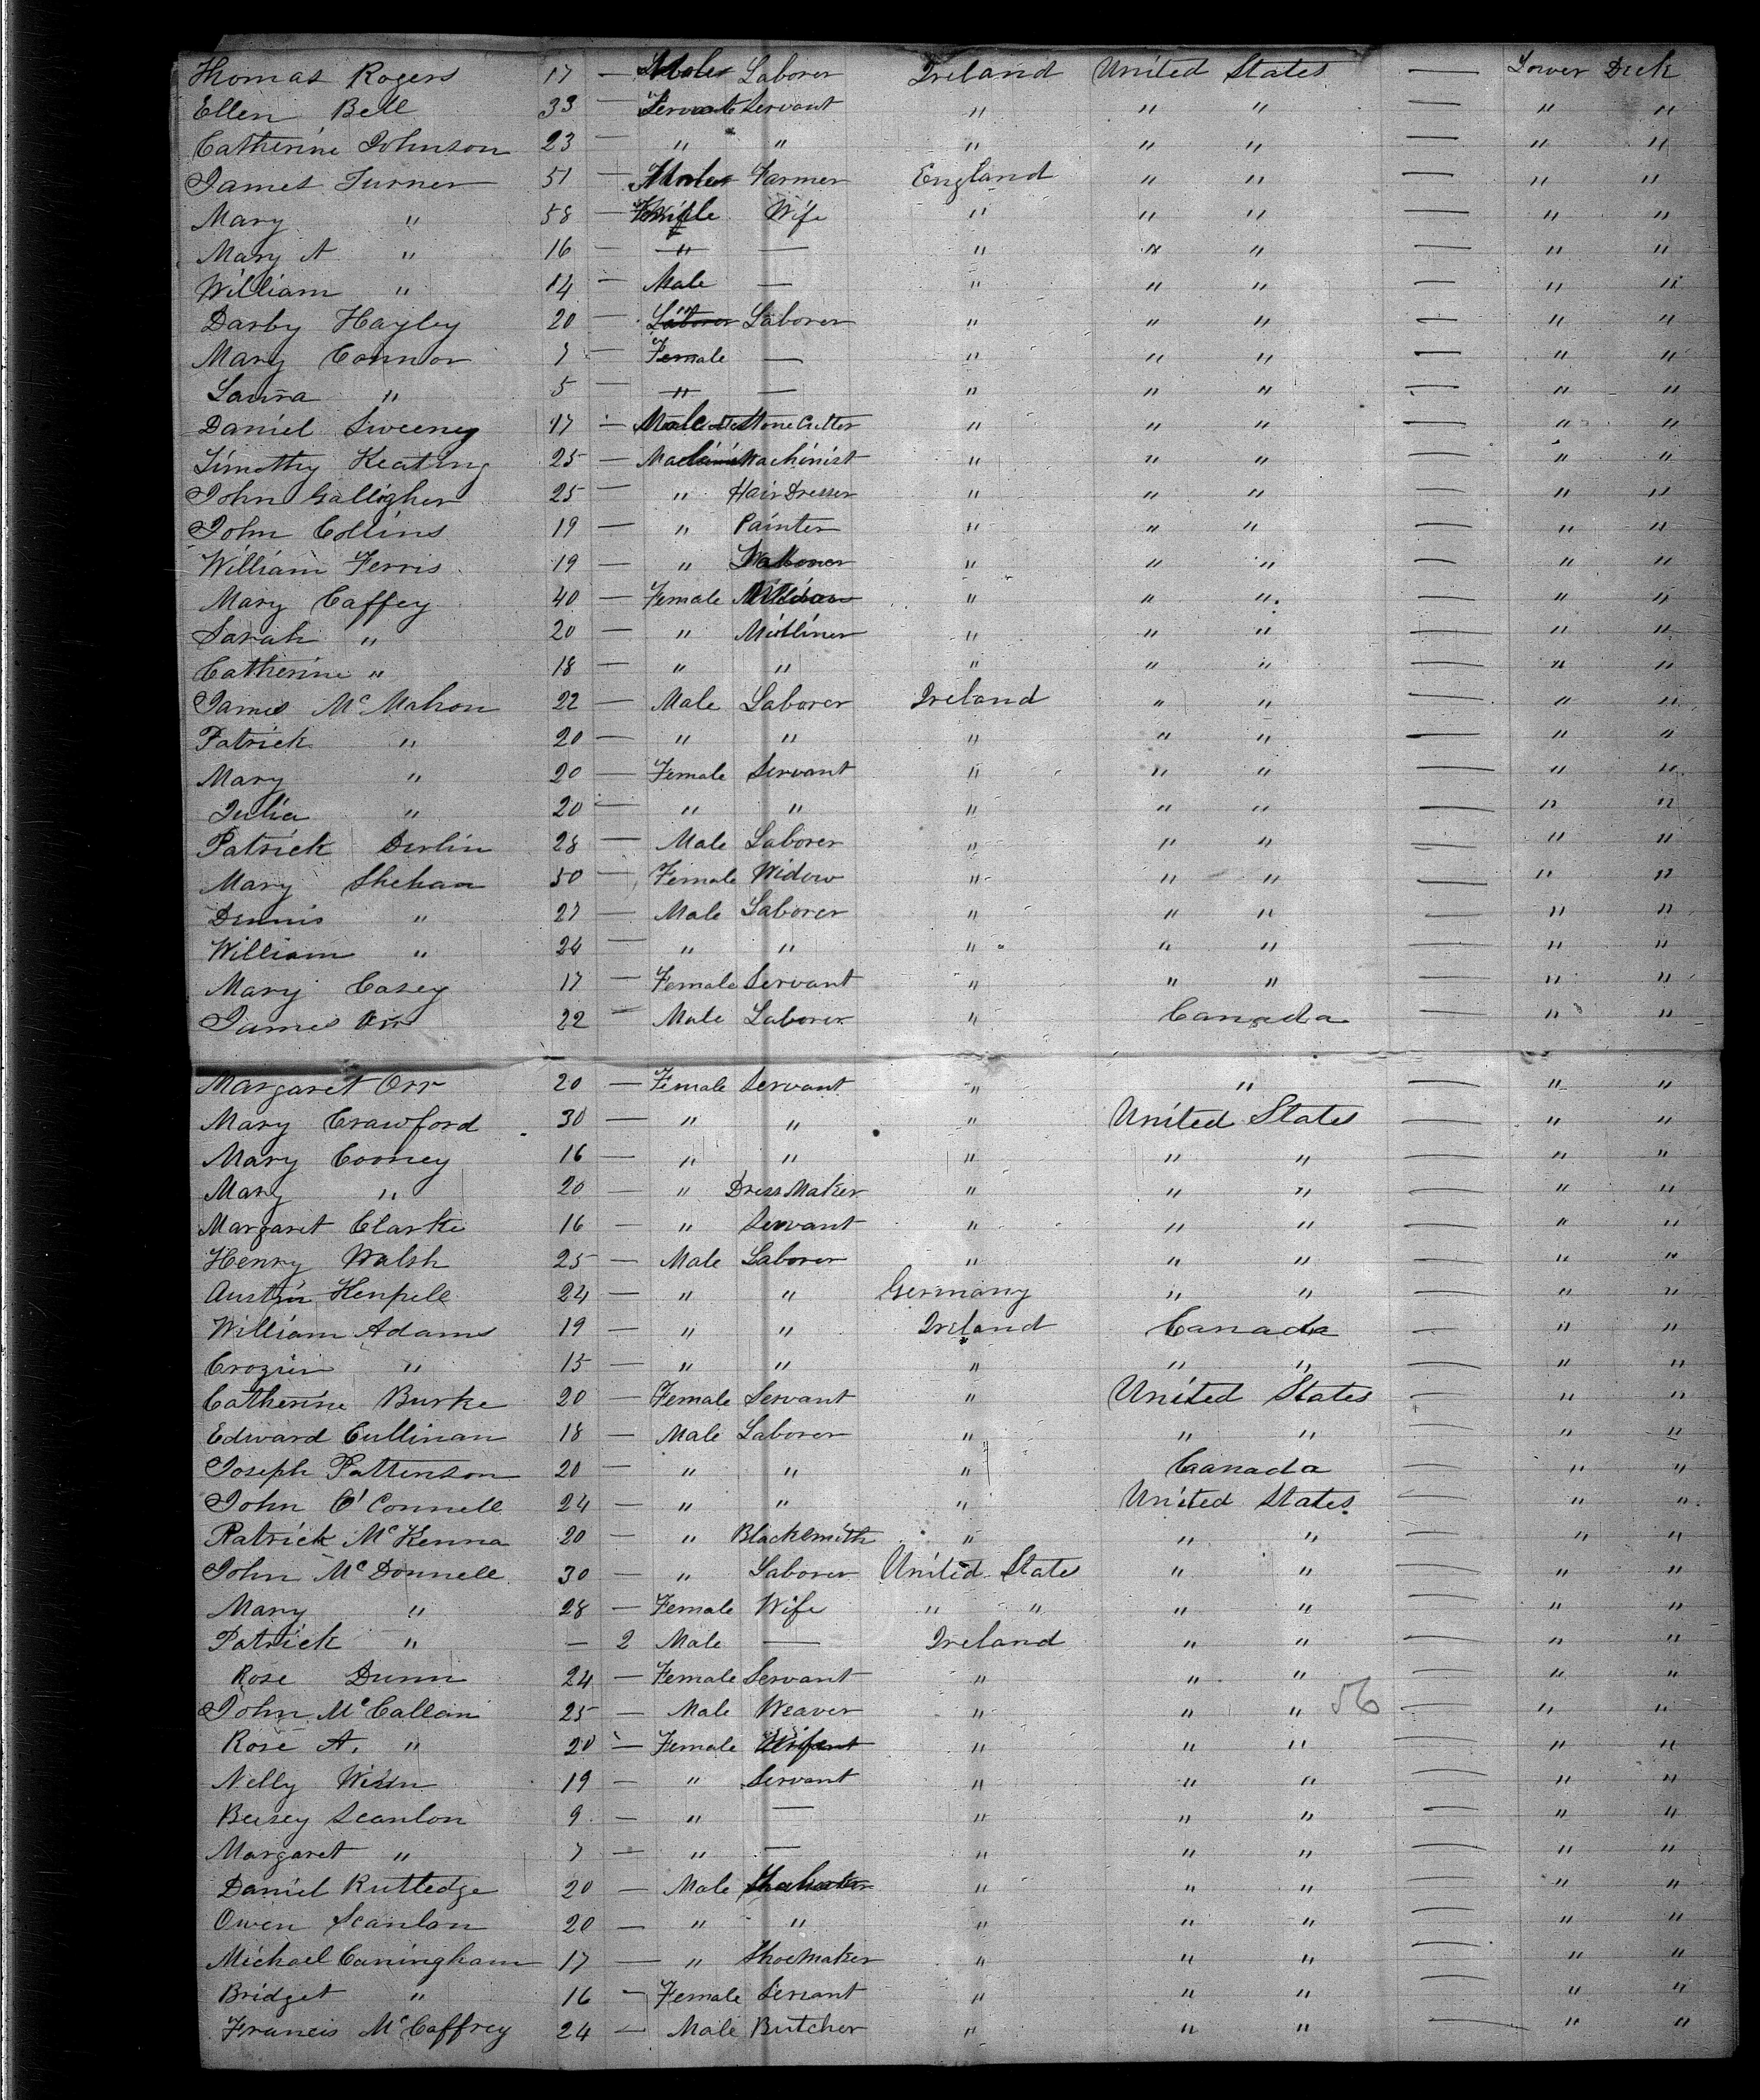 Thomas Rogers 17 — Male Laborer Ireland United States — Lower Deck
Ellen Bell 33 — Servant " " " — " "
Catherine Johnson 23 — " " " " " — " "
James Turner 51 — Male Farmer England " " — " "
Mary " 58 — Wife " " " — " "
Mary A " 16 — " — " " " — " "
William " 14 — Male — " " " — " "
Darby Hayley 20 — Laborer Laborer " " " — " "
Mary Connor 7 — Female — " " " — " "
Laura " 5 — " — " " " — " "
Daniel Sweeney 17 — Male Stone Cutter " " " — " "
Timothy Keating 25 — Machinist " " " — " "
John Galligher 25 — " Hair Dresser " " " — " "
John Collins 19 — " Painter " " " — " "
William Ferris 19 — " " " " — " "
Mary Caffey 40 — Female " " " — " "
Sarah " 20 — " Milliner " " " — " "
Catherine " 18 — " " " " " — " "
James McMahon 22 — Male Laborer Ireland " " — " "
Patrick " 20 — " " " " " — " "
Mary " 20 — Female Servant " " " — " "
Julia " 20 — " " " " " — " "
Patrick Derlin 28 — Male Laborer " " " — " "
Mary Shehan 50 — Female Widow " " " — " "
Dennis " 27 — Male Laborer " " " — " "
William " 24 — " " " " " — " "
Mary Casey 17 — Female Servant " " " — " "
James Orr 22 — Male Laborer " Canada — " "
Margaret Orr 20 — Female Servant " " — " "
Mary Crawford 30 — " " " United States — " "
Mary Cooney 16 — " " " " " — " "
Mary " 20 — " Dress Maker " " " — " "
Margaret Clarke 16 — " Servant " " " — " "
Henry Walsh 25 — Male Laborer " " " — " "
Austin Henpell 24 — " " Germany " " — " "
William Adams 19 — " " Ireland Canada — " "
Crozier " 15 — " " " " " — " "
Catherine Burke 20 — Female Servant " United States — " "
Edward Cullinan 18 — Male Laborer " " " — " "
Joseph Pattenson 20 — " " " Canada — " "
John O'Connell 24 — " " " United States — " "
Patrick McKenna 20 — " Blacksmith " " " — " "
John McDonnell 30 — " Laborer United States " " — " "
Mary " 28 — Female Wife " " " " — " "
Patrick " — 2 Male — Ireland " " — " "
Rose Dunn 24 — Female Servant " " " — " "
John McCallan 25 — Male Weaver " " " 56 — " "
Rose A. " 20 — Female Wife " " " — " "
Nelly Winn 19 — " Servant " " " — " "
Bessey Scanlon 9 — " — " " " — " "
Margaret " 7 — " — " " " — " "
Daniel Rutledge 20 — Male " " " — " "
Owen Scanlon 20 — " " " " " — " "
Michael Caningham 17 — " Shoemaker " " " — " "
Bridget " 16 — Female Servant " " " — " "
Francis McCaffrey 24 — Male Butcher " " " — " "